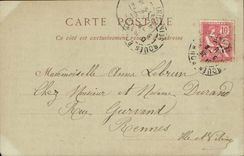 CARTE POSTALE
Ce côté est exclusivement réservé à l'adresse
10
Mademoiselle Anna Lebrun
Chez Monsieur et Madame Durand
Rue
Rennes
Ille et Vilaine